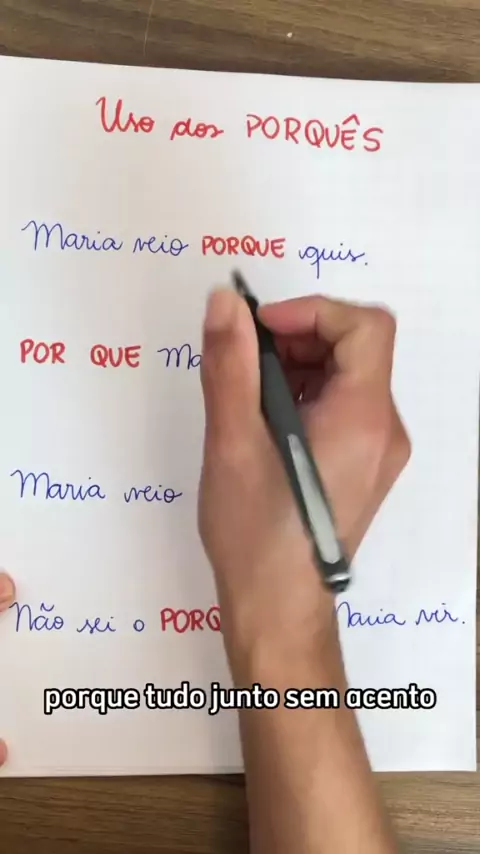 Uso dos PORQUÊS
Maria veio PORQUE quis.
POR QUE
Maria veio
Não sei o Maria vir.
porque tudo junto sem acento